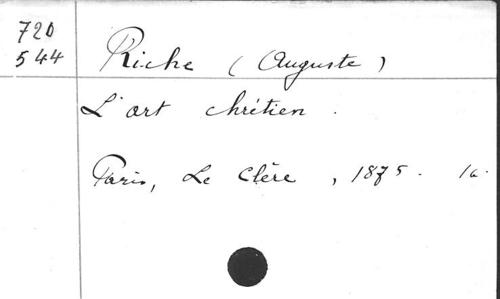 720
544
Riche (Auguste)
L'art chrétien.
Paris, Le Clère, 1875. 1a.